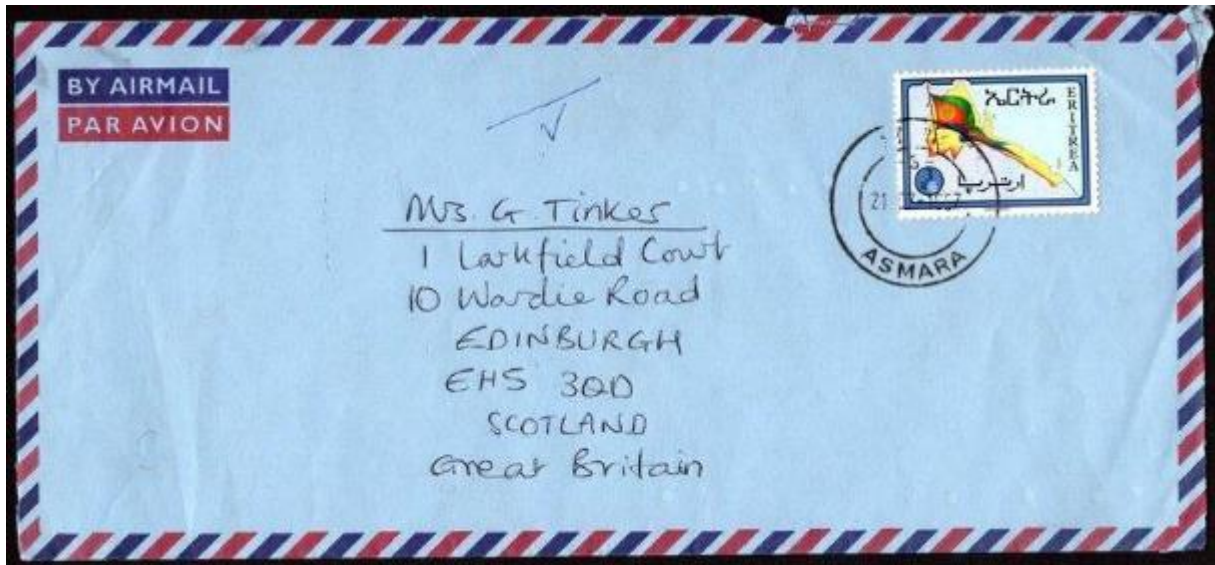 BY AIRMAIL
PAR AVION
ኤርትራ
ERITREA
إرتريا
ASMARA
Mrs. G. Tinker
1 Larkfield Court
10 Wardie Road
EDINBURGH
EH5 3QD
SCOTLAND
Great Britain